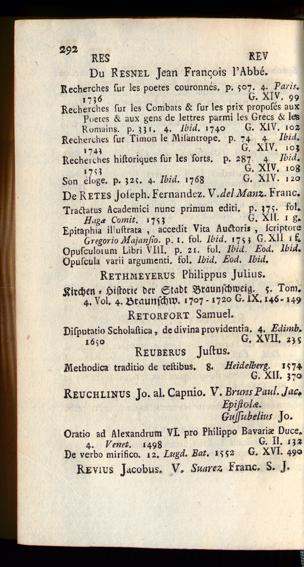 292
RES REV
Du RESNEL Jean François l'Abbé.
Recherches sur les poetes couronnés. p. 507. 4. Paris.
1736 G. XIV. 99
Recherches sur les Combats & sur les prix proposés aux
Poetes & aux gens de lettres parmi les Grecs & les
Romains. p. 331. 4. Ibid. 1740 G. XIV. 102
Recherches sur Timon le Misantrope. p. 74 4. Ibid.
1743 G. XIV. 103
Recherches historiques sur les sorts. p. 287 4 Ibid.
1753 G. XIV. 108
Son éloge. p. 325. 4. Ibid. 1768 G. XIV. 120
De RETES Joseph. Fernandez. V. del Manz. Franc.
Tractatus Academici nunc primum editi. p. 375. fol.
Hagæ Comit. 1753 G. XII. 1 st.
Epitaphia illustrata, accedit Vita Auctoris, scriptore
Gregorio Majansio. p. 1. fol. Ibid. 1753 G. XII 1 st.
Opusculorum Libri VIII. p. 21. fol. Ibid. Eod. Ibid.
Opuscula varii argumenti. fol. Ibid. Eod. Ibid.
RETHMEYERUS Philippus Julius.
Kirchen-Historie der Stadt Braunschweig. 5. Tom.
4. Vol. 4. Braunschw. 1707-1720 G. IX. 146-149
RETORFORT Samuel.
Disputatio Scholastica, de divina providentia. 4. Edimb.
1650 G. XVII. 235
REUBERUS Justus.
Methodica traditio de testibus. 8. Heidelberg. 1574
G. XII. 370
REUCHLINUS Jo. al. Capnio. V. Bruns Paul. Jac.
Epistolæ.
Gussubelius Jo.
Oratio ad Alexandrum VI. pro Philippo Bavariæ Duce.
4. Venet. 1498 G. II. 132
De verbo mirifico. 12. Lugd. Bat. 1552 G. XVI. 490
REVIUS Jacobus. V. Suarez Franc. S. J.